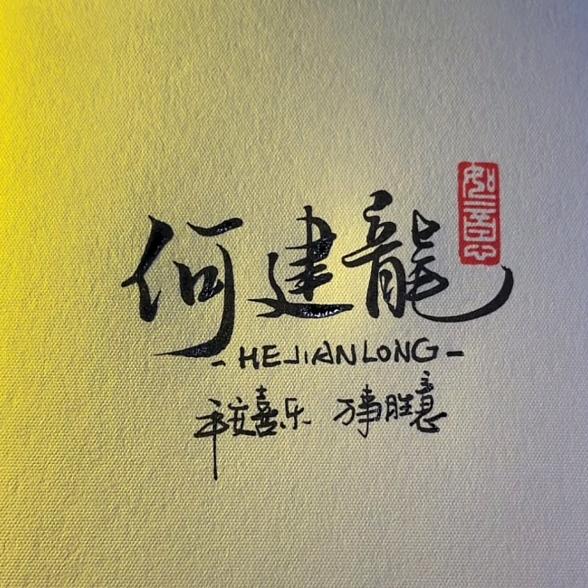 何建龍
如意
- HEJIANLONG -
平安喜乐 万事胜意